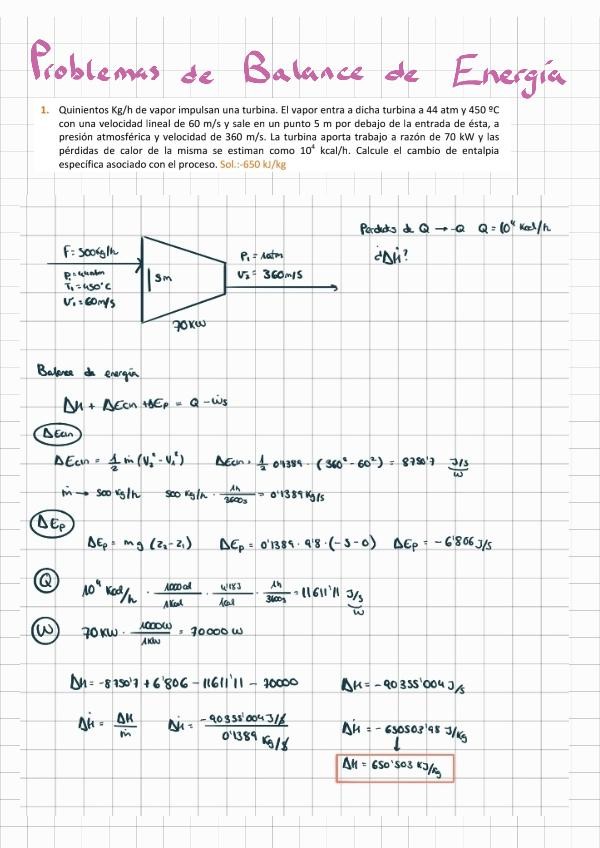 Problemas de Balance de Energía
1. Quinientos Kg/h de vapor impulsan una turbina. El vapor entra a dicha turbina a 44 atm y 450 ºC
con una velocidad lineal de 60 m/s y sale en un punto 5 m por debajo de la entrada de ésta, a
presión atmosférica y velocidad de 360 m/s. La turbina aporta trabajo a razón de 70 kW y las
pérdidas de calor de la misma se estiman como 10⁴ kcal/h. Calcule el cambio de entalpia
específica asociado con el proceso. Sol.:-650 kJ/kg
Perdidas de Q → -Q Q = 10⁴ Kcal/h
¿ΔĤ?
F = 500 Kg/h
P₁ = 44 atm
T₁ = 450°C
V₁ = 60 m/s
5m
P₂ = 1 atm
V₂ = 360 m/s
70 KW
Balance de energía
ΔH + ΔEcin + ΔEp = Q - Ws
ΔEcin
ΔEcin = 1/2 ṁ (V₂² - V₁²) ΔEcin = 1/2 0'1389 · (360² - 60²) = 8750'7 J/s
W
ṁ → 500 Kg/h 500 Kg/h · 1h/3600s = 0'1389 Kg/s
ΔEp
ΔEp = m g (z₂ - z₁) ΔEp = 0'1389 · 9'8 · (-5 - 0) ΔEp = -6'806 J/s
Q
10⁴ Kcal/h · 1000cal/1Kcal · 4'18J/1cal · 1h/3600s = 11611'11 J/s
W
W
70 KW · 1000W/1KW = 70000 W
ΔH = -8750'7 + 6'806 - 11611'11 - 70000 ΔH = -90355'004 J/s
ΔĤ = ΔH/ṁ ΔĤ = -90355'004 J/s / 0'1389 Kg/s ΔĤ = -650503'98 J/Kg
↓
ΔH = 650'503 KJ/Kg